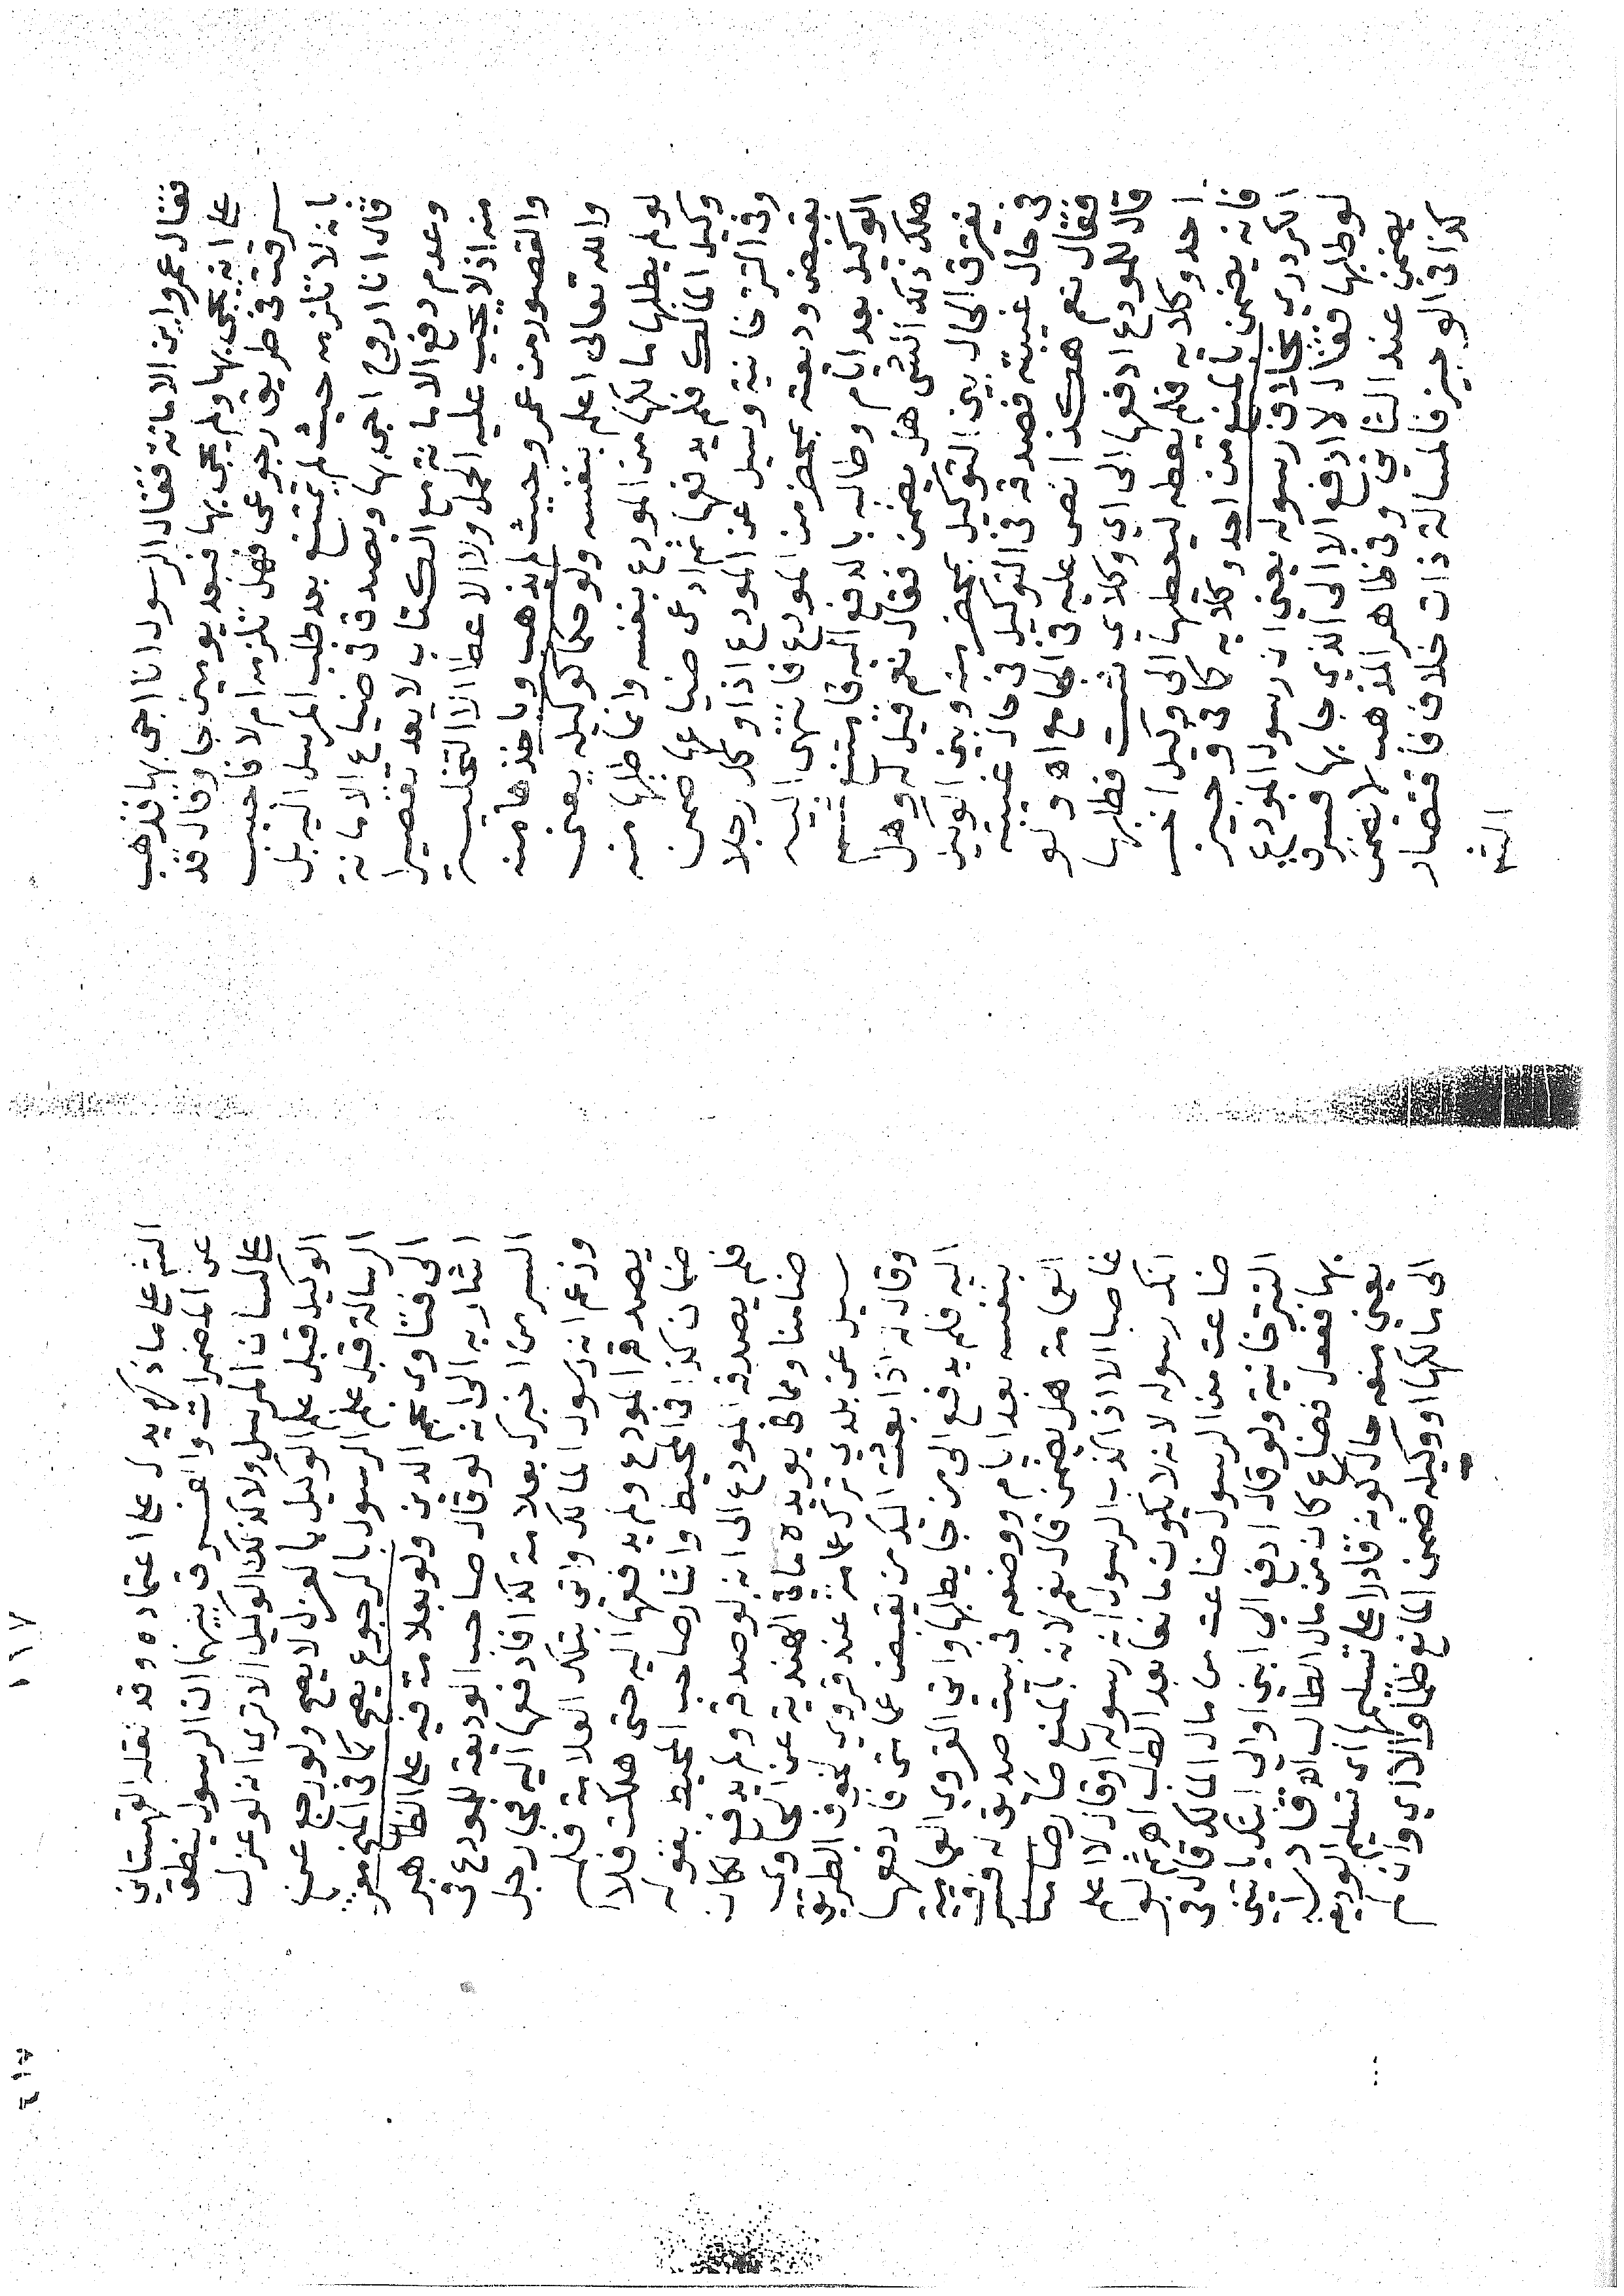 فقال عمرو اين الامانة فقال الرسول انا اجي بها فذهب
على انه يجي بها ولم يجي بها فبعد يومين جا وقال قد
سرقت في طريق رجوعي فهل تلزمه ام لا فاجيب
بانه لا تلزمه حيث لم يمتنع بعد طلب المرسل اليه بل
قال انا اروح اجي بها ويصدق في ضياع الامانة
وعدم دفع الامانة مع الكتاب لا يعد تقصيرا
منه اذ لا يجب عليه الحمل ولا الاعطا الا التخلية
والقصور من عمرو حيث لم يذهب وياخذها منه
والله تعالى اعلم بنفسه ولو حكما كوكيله يعني
لو لم يطلبها مالكها من المودع بنفسه وانما طلبها منه
وكيل المالك فلم يدفعها ثم ادعى ضياعها ضمن
وفي التترخانية وسيل عن المودع اذا وكل رجلا
بقبض وديعته بمحضر من المودع فانتهى اليه
الوكيل بعد ايام وطالبه بالدفع اليه فامتنع ثم
هلك ذلك الشي هل يضمن فقال نعم قيل له وهل
يفترق الحال بين التوكيل بمحضر منه وبين
في حال غيبته فصدقه في التوكيل في حال غيبته
فقال نعم هكذا نص عليه في الجامع اه ولو
قال للمودع ادفعها الى اي وكلاي شئت فطلبها
احد وكلايه فلم يعطه ليعطيها الى وكيل اخر
فانه يضمن بالمنع من احد وكلايه كما في وجيز
الكردري بخلاف رسوله يعني ان رسول المودع
لو طلبها فقال لا ادفع الا الى الذي جا بها فسرق
يضمن عند الثاني وفي ظاهر المذهب لا يضمن
كذا في الوجيز فالمسالة ذات خلاف فاقتصار
الثم
١١٧
الثم على ما ذكره يدل على اعتماده وقد نقله القهستاني
عن المضمرات والفرق بينهما ان الرسول ينطق
على لسان المرسل ولا كذلك الوكيل الا ترى انه لو عزل
الوكيل قبل علم الوكيل بالعزل لا يصح ولو رجع عن
الرسالة قبل علم الرسول بالرجوع يصح كما في المنح معزيا
الى فتاوى نجم الدين ولو بعلامة فيه على الظاهر
اشار به الى انه لو قال صاحب الوديعة للمودع في
السر من اخبرك بعلامة كذا فادفعها اليه فجا رجل
وزعم انه رسول المالك واتى بتلك العلامة فلم
يصدقه المودع ولم يدفعها اليه حتى هلكت فلا
ضمان كذا في المحيط واشار صاحب المحيط بقوله
فلم يصدقه المودع الى انه لو صدقه ولم يدفع لكان
ضامنا ومما يويده ما في الهندية عن الحاوي
سيل عن بلدي ترك عمامته عند قروي لخوف الطريق
وقال له اذا بعثت اليك من يقبض عمامتي فادفعها
اليه فلم يدفع الى من جا يطلبها واتي القروي العمامة
بنفسه بعد ايام ووضعه في بيت صديق له فسرقت
العمامة هل يضمن قال نعم لانه بالمنع صار ضامنا
غاصبا الا اذا كذب الرسول انه رسوله او قال لا اعلم
انك رسوله لانه لا يكون مانعا بعد الطلب اه ثم لو
ضاعت من الرسول ضاعت من مال المالك قال في
التترخانية ولو قال ادفع الي ابني او الي ابنك ياتني
بها ففعل فضاع كان من مال الطالب الا قادرا
يعني منعه حال كونه قادرا على تسليمها اي تسليم الوديعة
الى مالكها او وكيله ضمن المانع ظلما والا اي وان لم
٤١٧